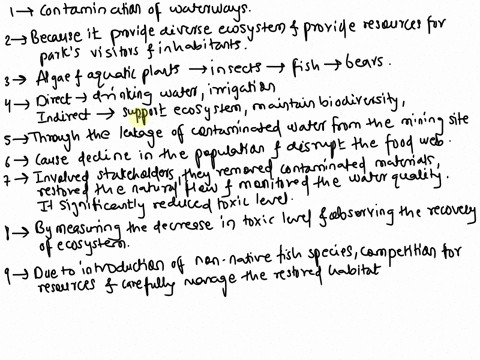 1 → Contamination of waterways.
2 → Because it provide diverse ecosystem & provide resources for
park's visitors & inhabitants.
3 → Algae & aquatic plants → insects → fish → bears.
4 → Direct → drinking water, irrigation
Indirect → support ecosystem, maintain biodiversity,
5 → Through the leakage of contaminated water from the mining site
6 → Cause decline in the population & disrupt the food web.
7 → Involved stakeholders, they removed contaminated materials,
restored the natural flow & monitored the water quality.
It significantly reduced toxic level.
8 → By measuring the decrease in toxic level & observing the recovery
of ecosystem.
9 → Due to introduction of non-native fish species, competition for
resources & carefully manage the restored habitat